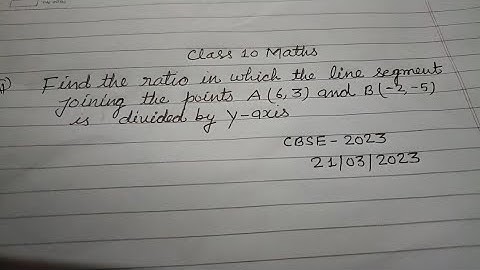 Class 10 Maths
Find the ratio in which the line segment
joining the points A(6,3) and B(-2,-5)
is divided by Y-axis
CBSE - 2023
21/03/2023